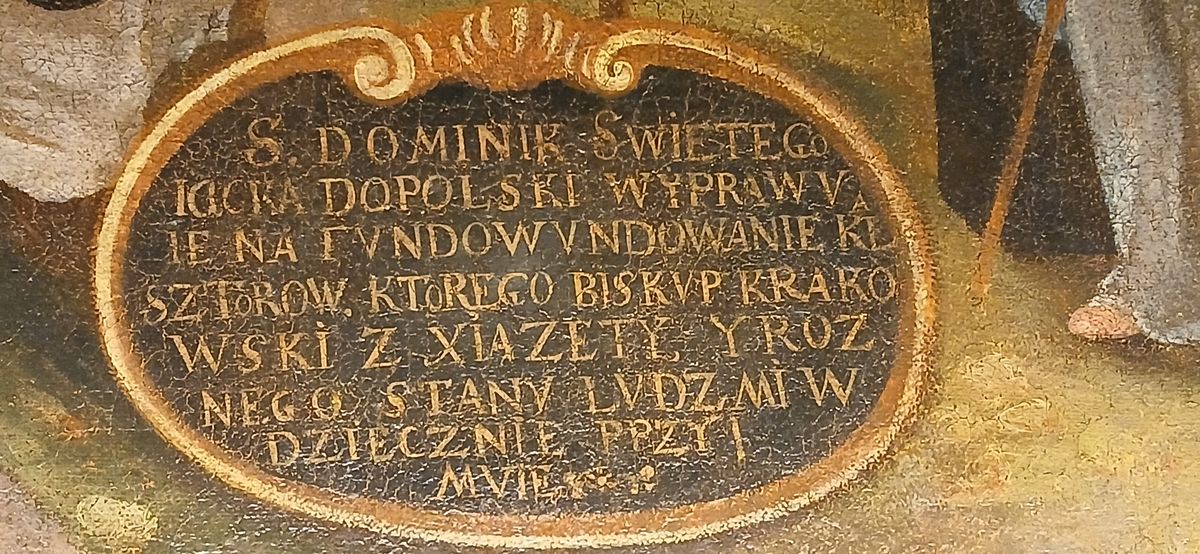 S. DOMINIK SWIĘTEGO
IACKA DOPOLSKI WYPRAWVA
IE NA FVNDOWVNDOWANIE KL
SZTOROW. KTOREGO BISKVP KRAKO
WSKI Z XIAZETY, Y ROZ
NEGO STANV LVDZMI W
DZIECZNIE PRZYI
MVIE